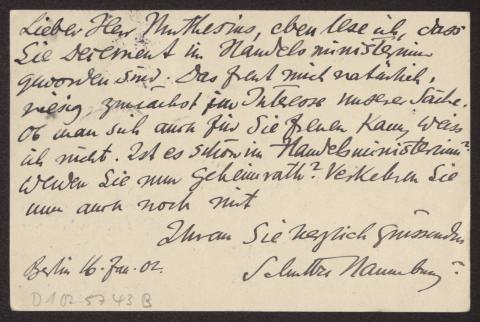 Lieber Herr Muthesius, eben lese ich, dass
Sie Decernent im Handelsministerium
geworden sind. Das freut mich natürlich,
riesig zunächst im Interesse unserer Sache.
Ob man sich auch für Sie freuen kann, weiss
ich nicht. Ist es schön im Handelsministerium?
Werden Sie nun Geheimrath? Verkehren Sie
nun auch noch mit
Ihrem Sie herzlich grüssenden
Berlin 16. Jan. 02. Schultze Naumburg?
D 102-5743 B